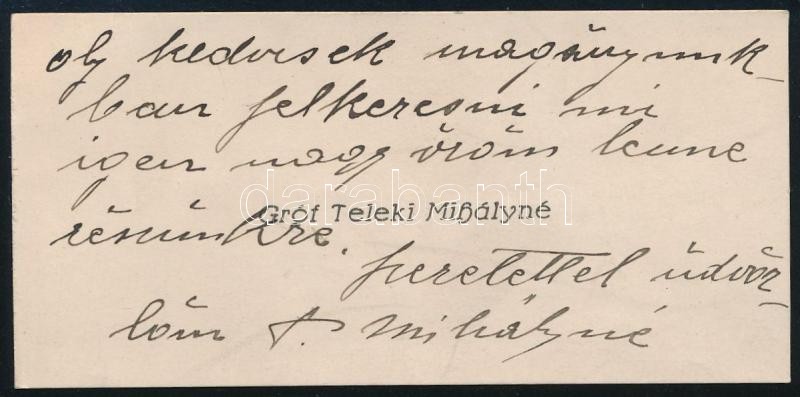 oly kedvesek magányunk-
ban felkeresni mi
igen nagy öröm lenne
Gróf Teleki Mihályné
részünkre.
szeretettel üdvöz-
löm T. Mihályné
darabanth